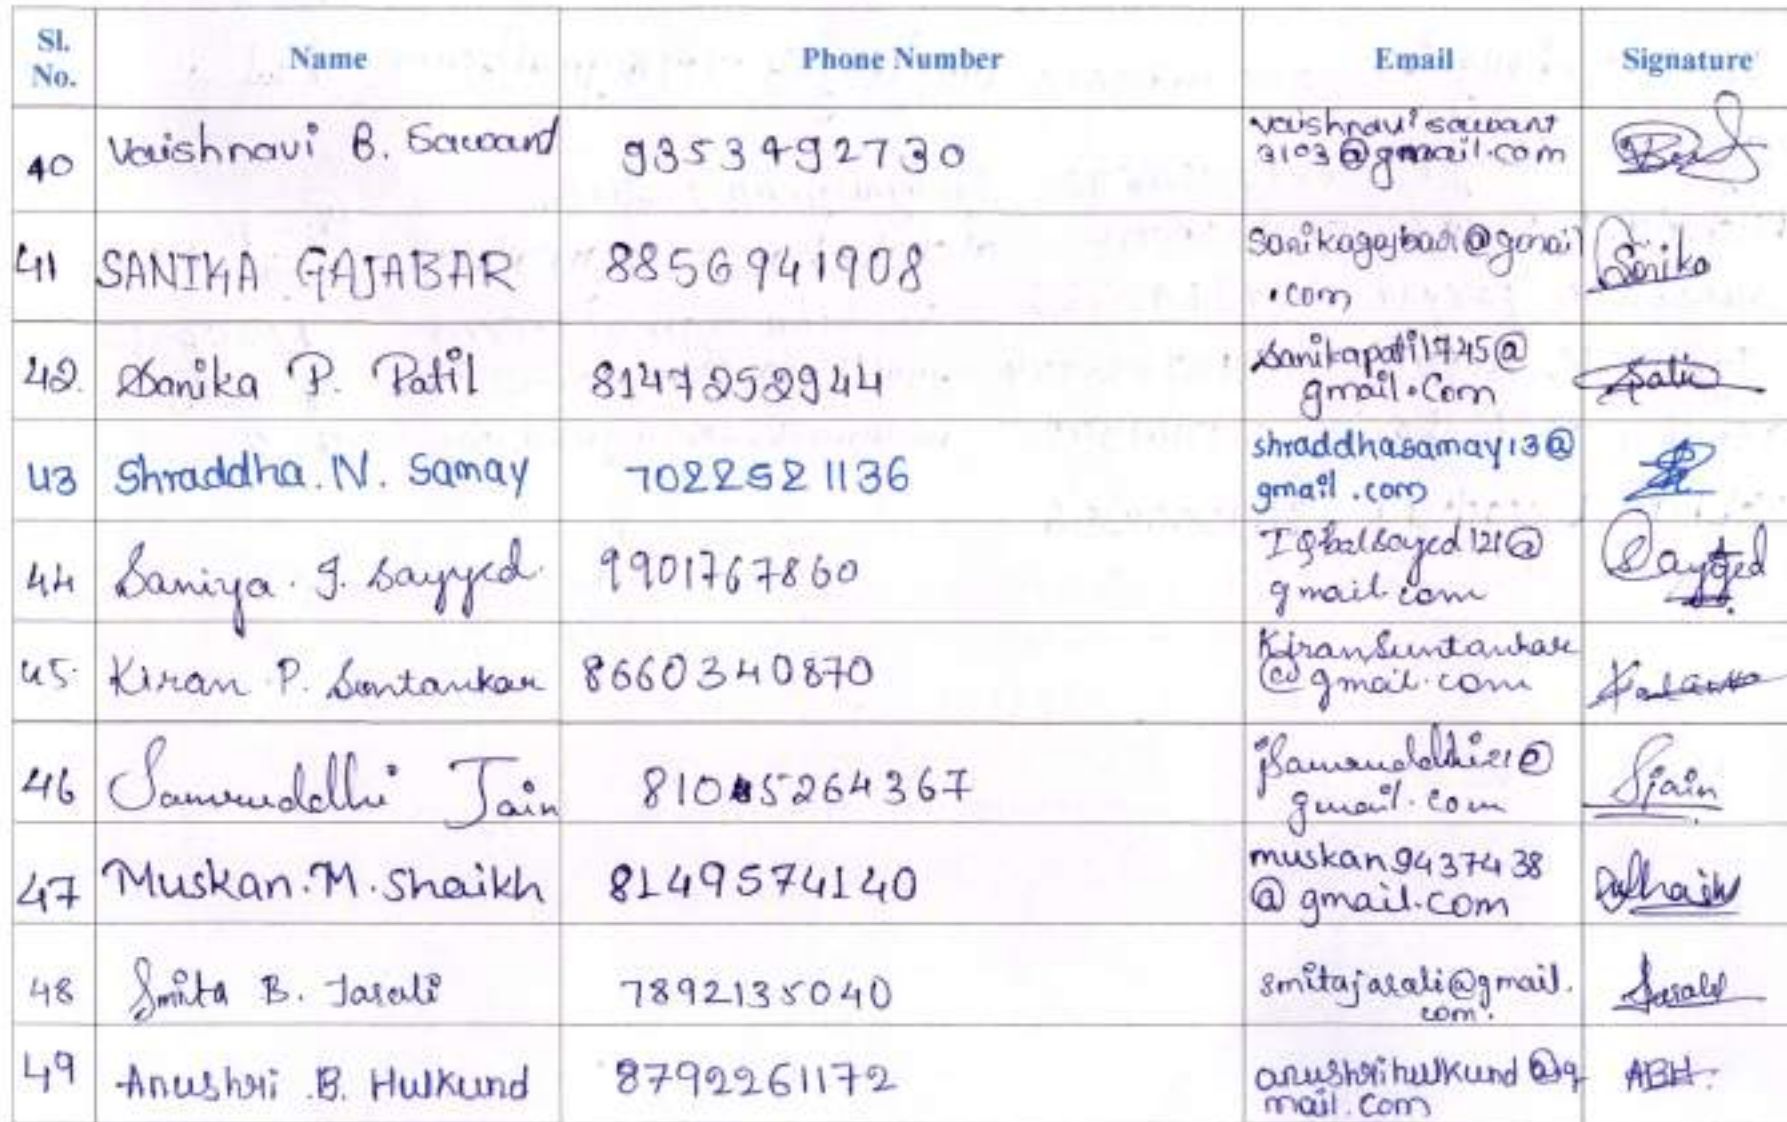 Sl. No. Name Phone Number Email Signature
40 Vaishnavi B. Sawant 9353492730 vaishnavisawant
3103@gmail.com
41 SANIKA GAJABAR 8856941908 sanikagajbar@gmail Sanika
.com
42. Sanika P. Patil 8147252944 sanikapatil1745@
gmail.Com
43 Shraddha. N. Samay 7022521136 shraddhasamay13@
gmail.com
44 Saniya. I. Sayyed. 9901767860 Iqbalsayed121@ Sayyed
gmail.com
45. Kiran P. Suntankar 8660340870 KiranSuntankar
@gmail.com
46 Samruddhi Jain 8105264367 jsamruddhi21@ SJain
gmail.com
47 Muskan.M.Shaikh 8149574140 muskan9437438
@gmail.com
48 Smita B. Jasali 7892135040 smitajasali@gmail.
com.
49 Anushri .B. Hulkund 8792261172 anushrihulkund@g ABH.
mail.Com